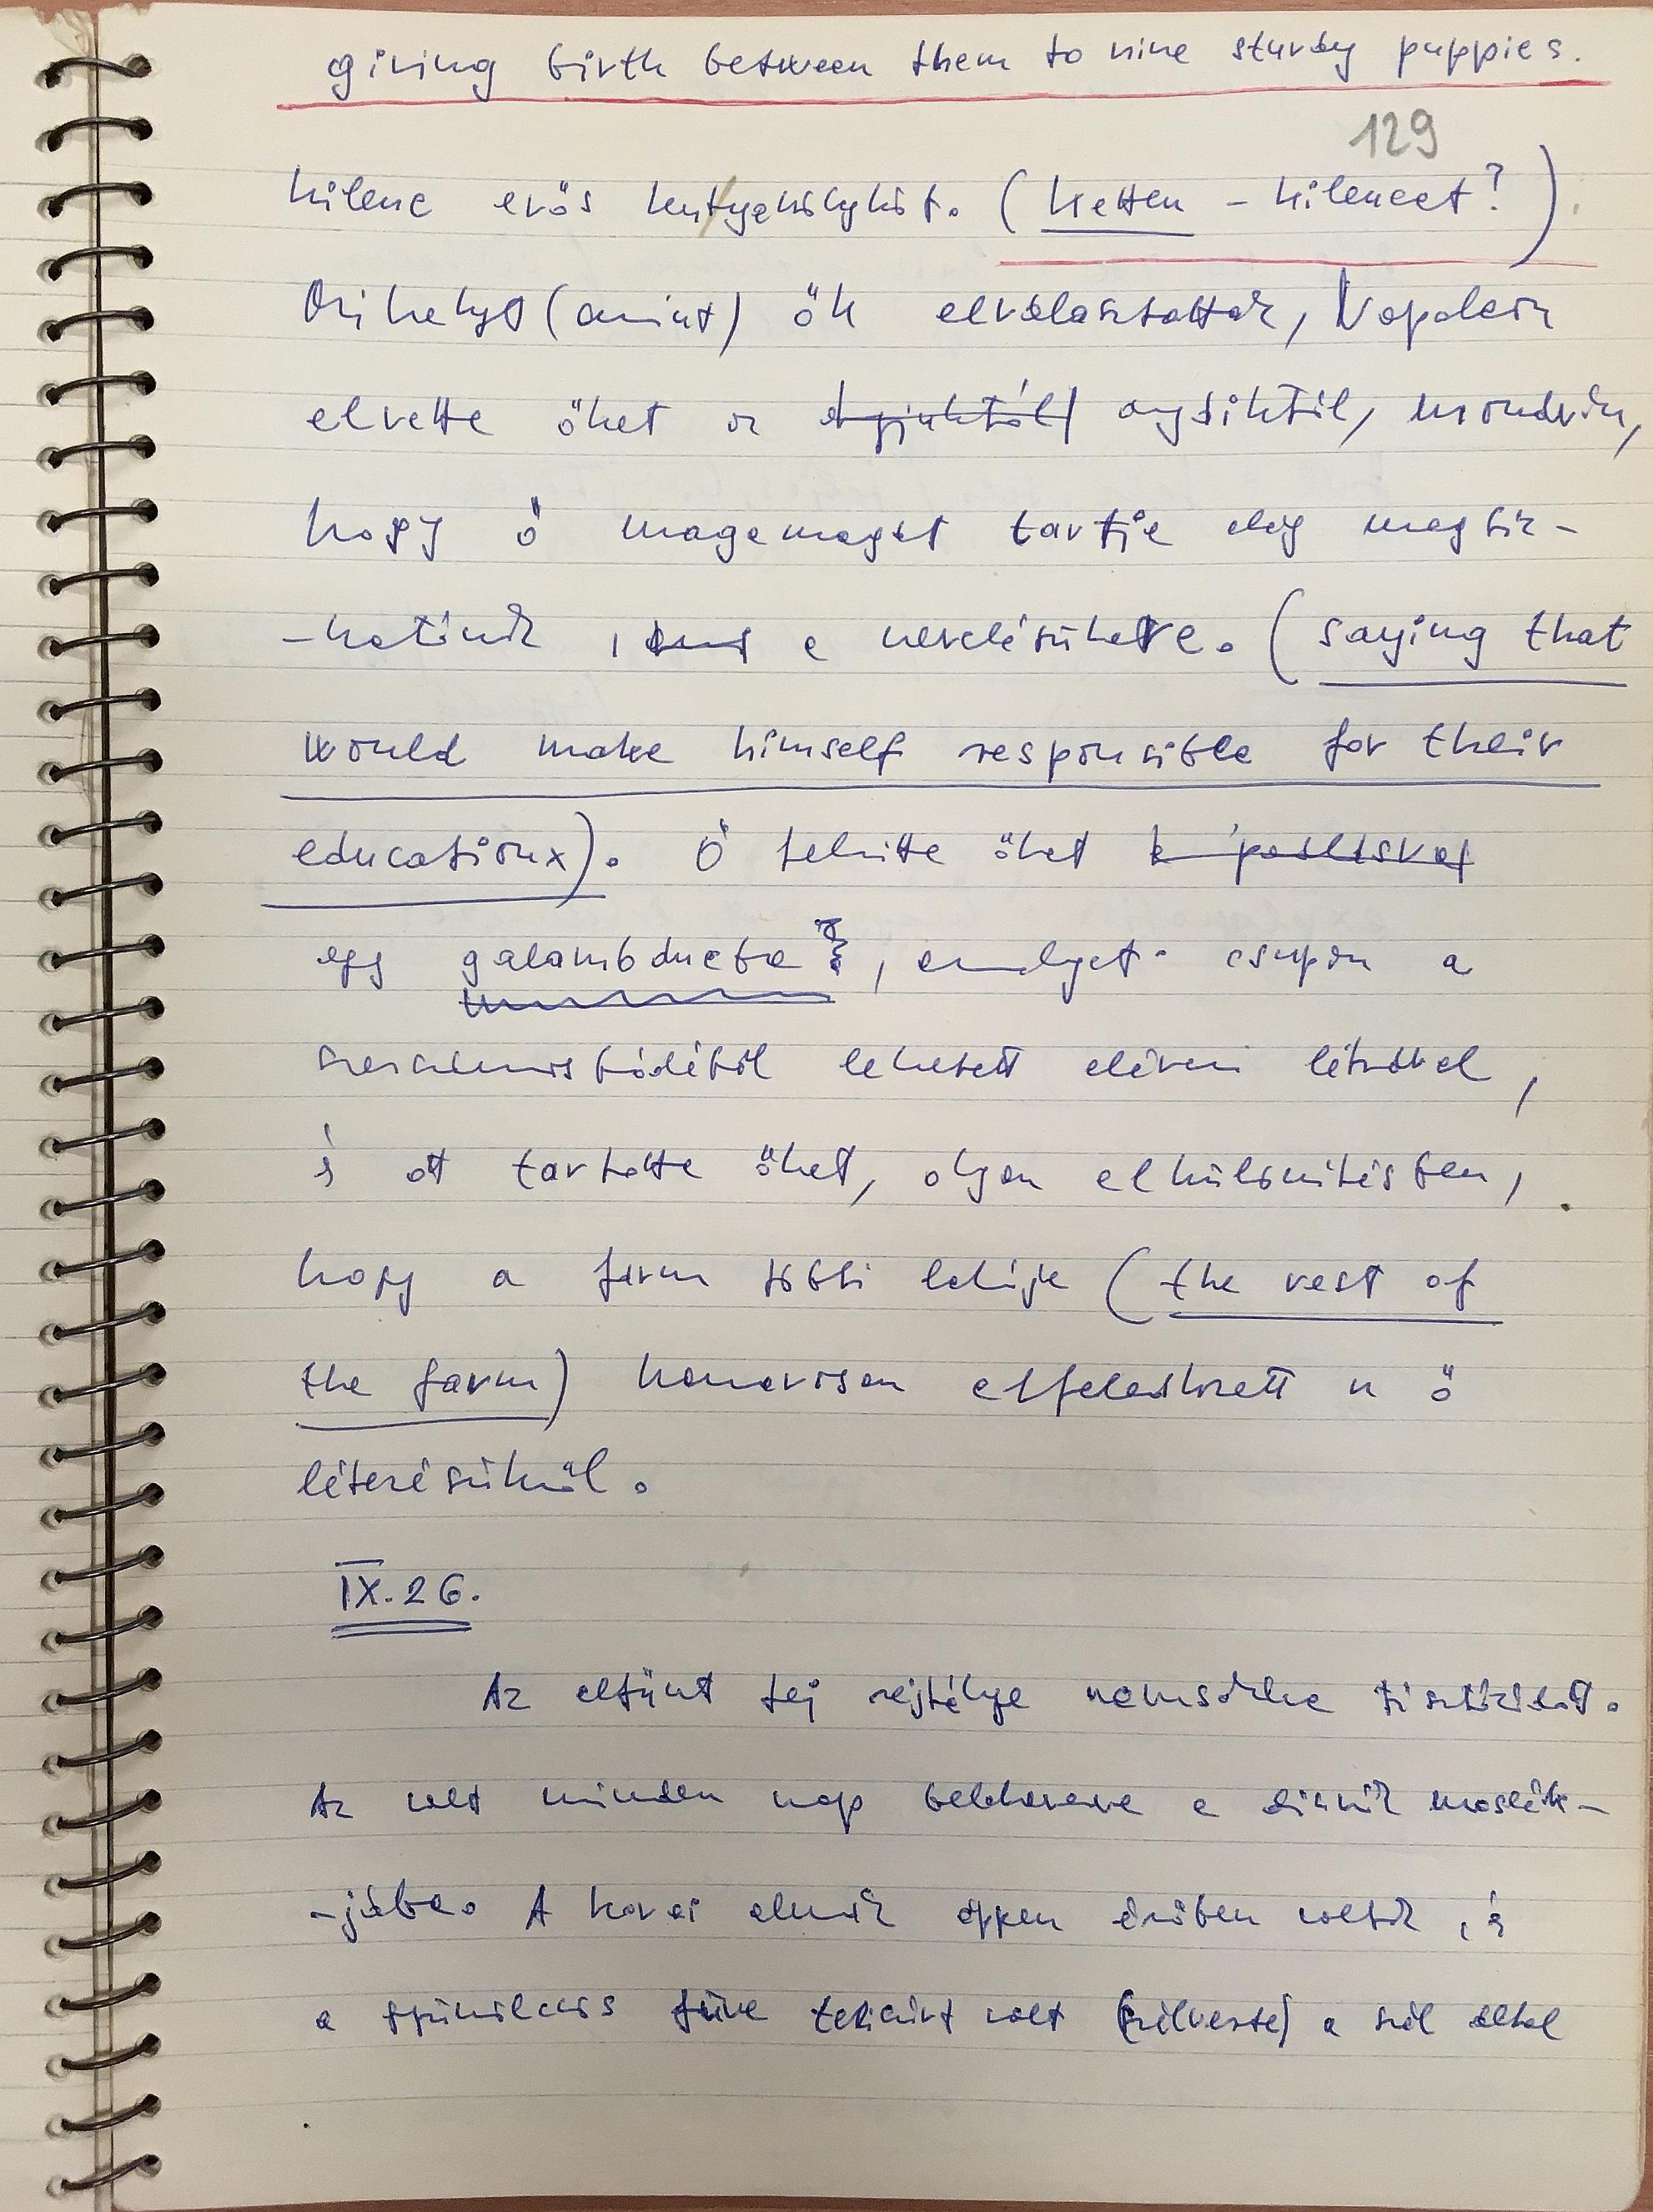 giving birth between them to nine sturdy puppies.
129
kilenc erős kutyakölyköt. (ketten - kilencet?)
Mihelyt (amint) ők elválasztattak, Napoleon
elvette őket az anyjuktól, mondván,
hogy ő magamagát tartja elég megbíz-
-hatónak, a nevelésükre. (saying that
would make himself responsible for their
educationx). Ő felvitte őket
egy galambducba, amelyet csupán a
szerszámosbódéból lehetett elérni létrával,
s ott tartotta őket, olyan elkülönítésben,
hogy a farm többi lakója (the rest of
the farm) hamarosan elfeledkezett az ő
létezésükről.
IX. 26.
Az eltűnt tej rejtélye nemsokára tisztázódott.
Az volt minden nap belekeverve a disznók moslék-
-jába. A korai almák éppen érőben voltak, s
a gyümölcsös füve teliszórt volt a szél által